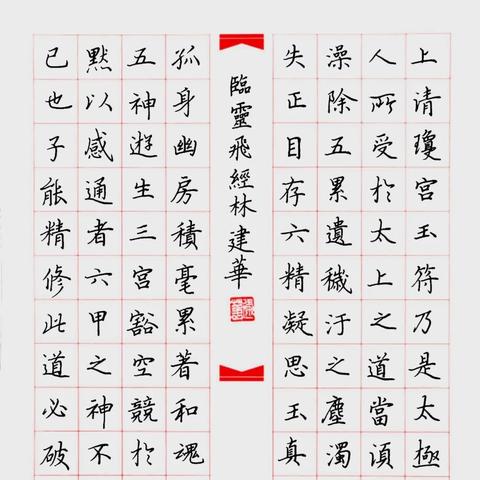 上清瓊宮玉符乃是太極
人所受於太上之道當須
澡除五累遺穢汙之塵濁
失正目存六精凝思玉真
臨靈飛經林建華
孤身幽房積毫累著和魂
五神遊生三宮豁空競於
默以感通者六甲之神不
已也子能精修此道必破